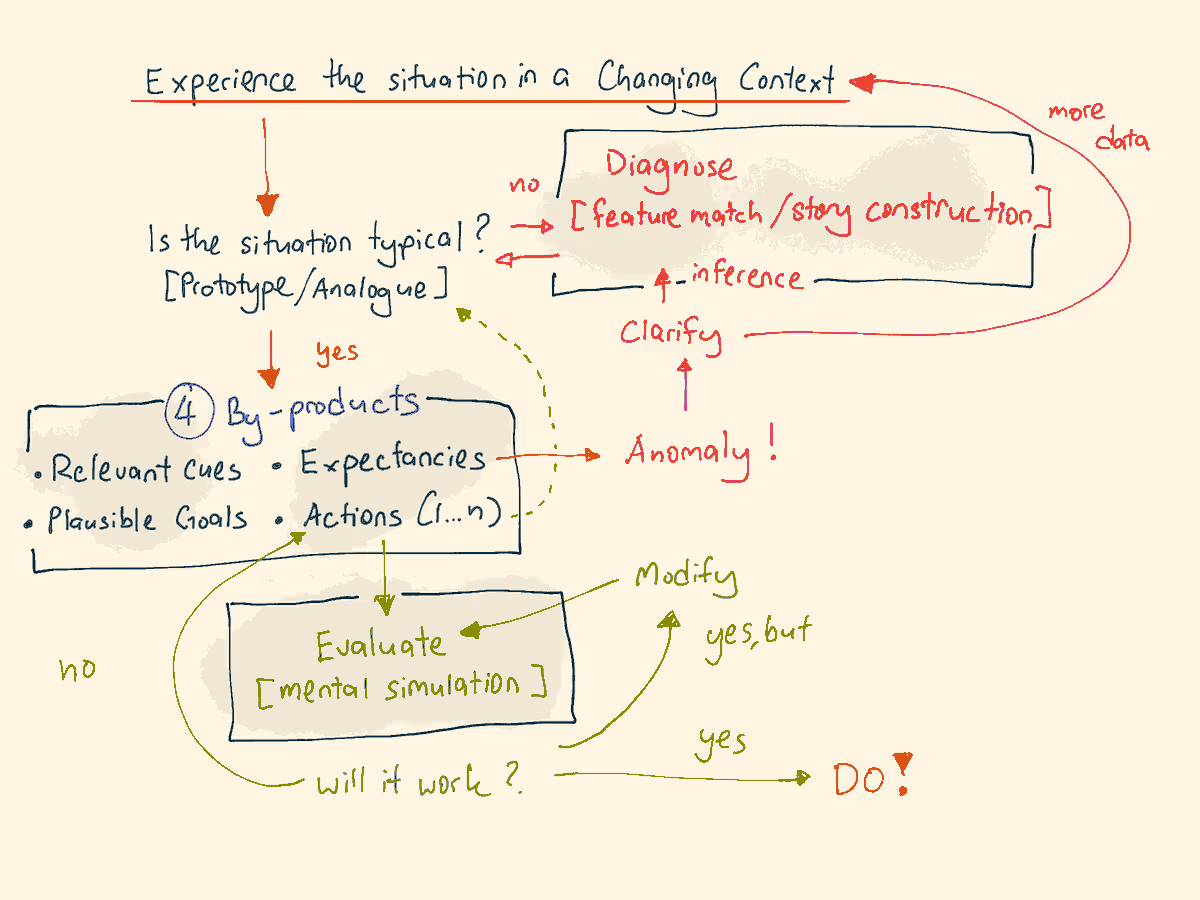 Experience the situation in a Changing Context
more
data
Diagnose
[feature match/story construction]
no
Is the situation typical?
[Prototype/Analogue]
inference
Clarify
yes
4 By-products
• Relevant cues • Expectancies
• Plausible Goals • Actions (1...n)
Anomaly!
Modify
yes, but
Evaluate
[mental simulation]
no
yes
will it work?
DO!